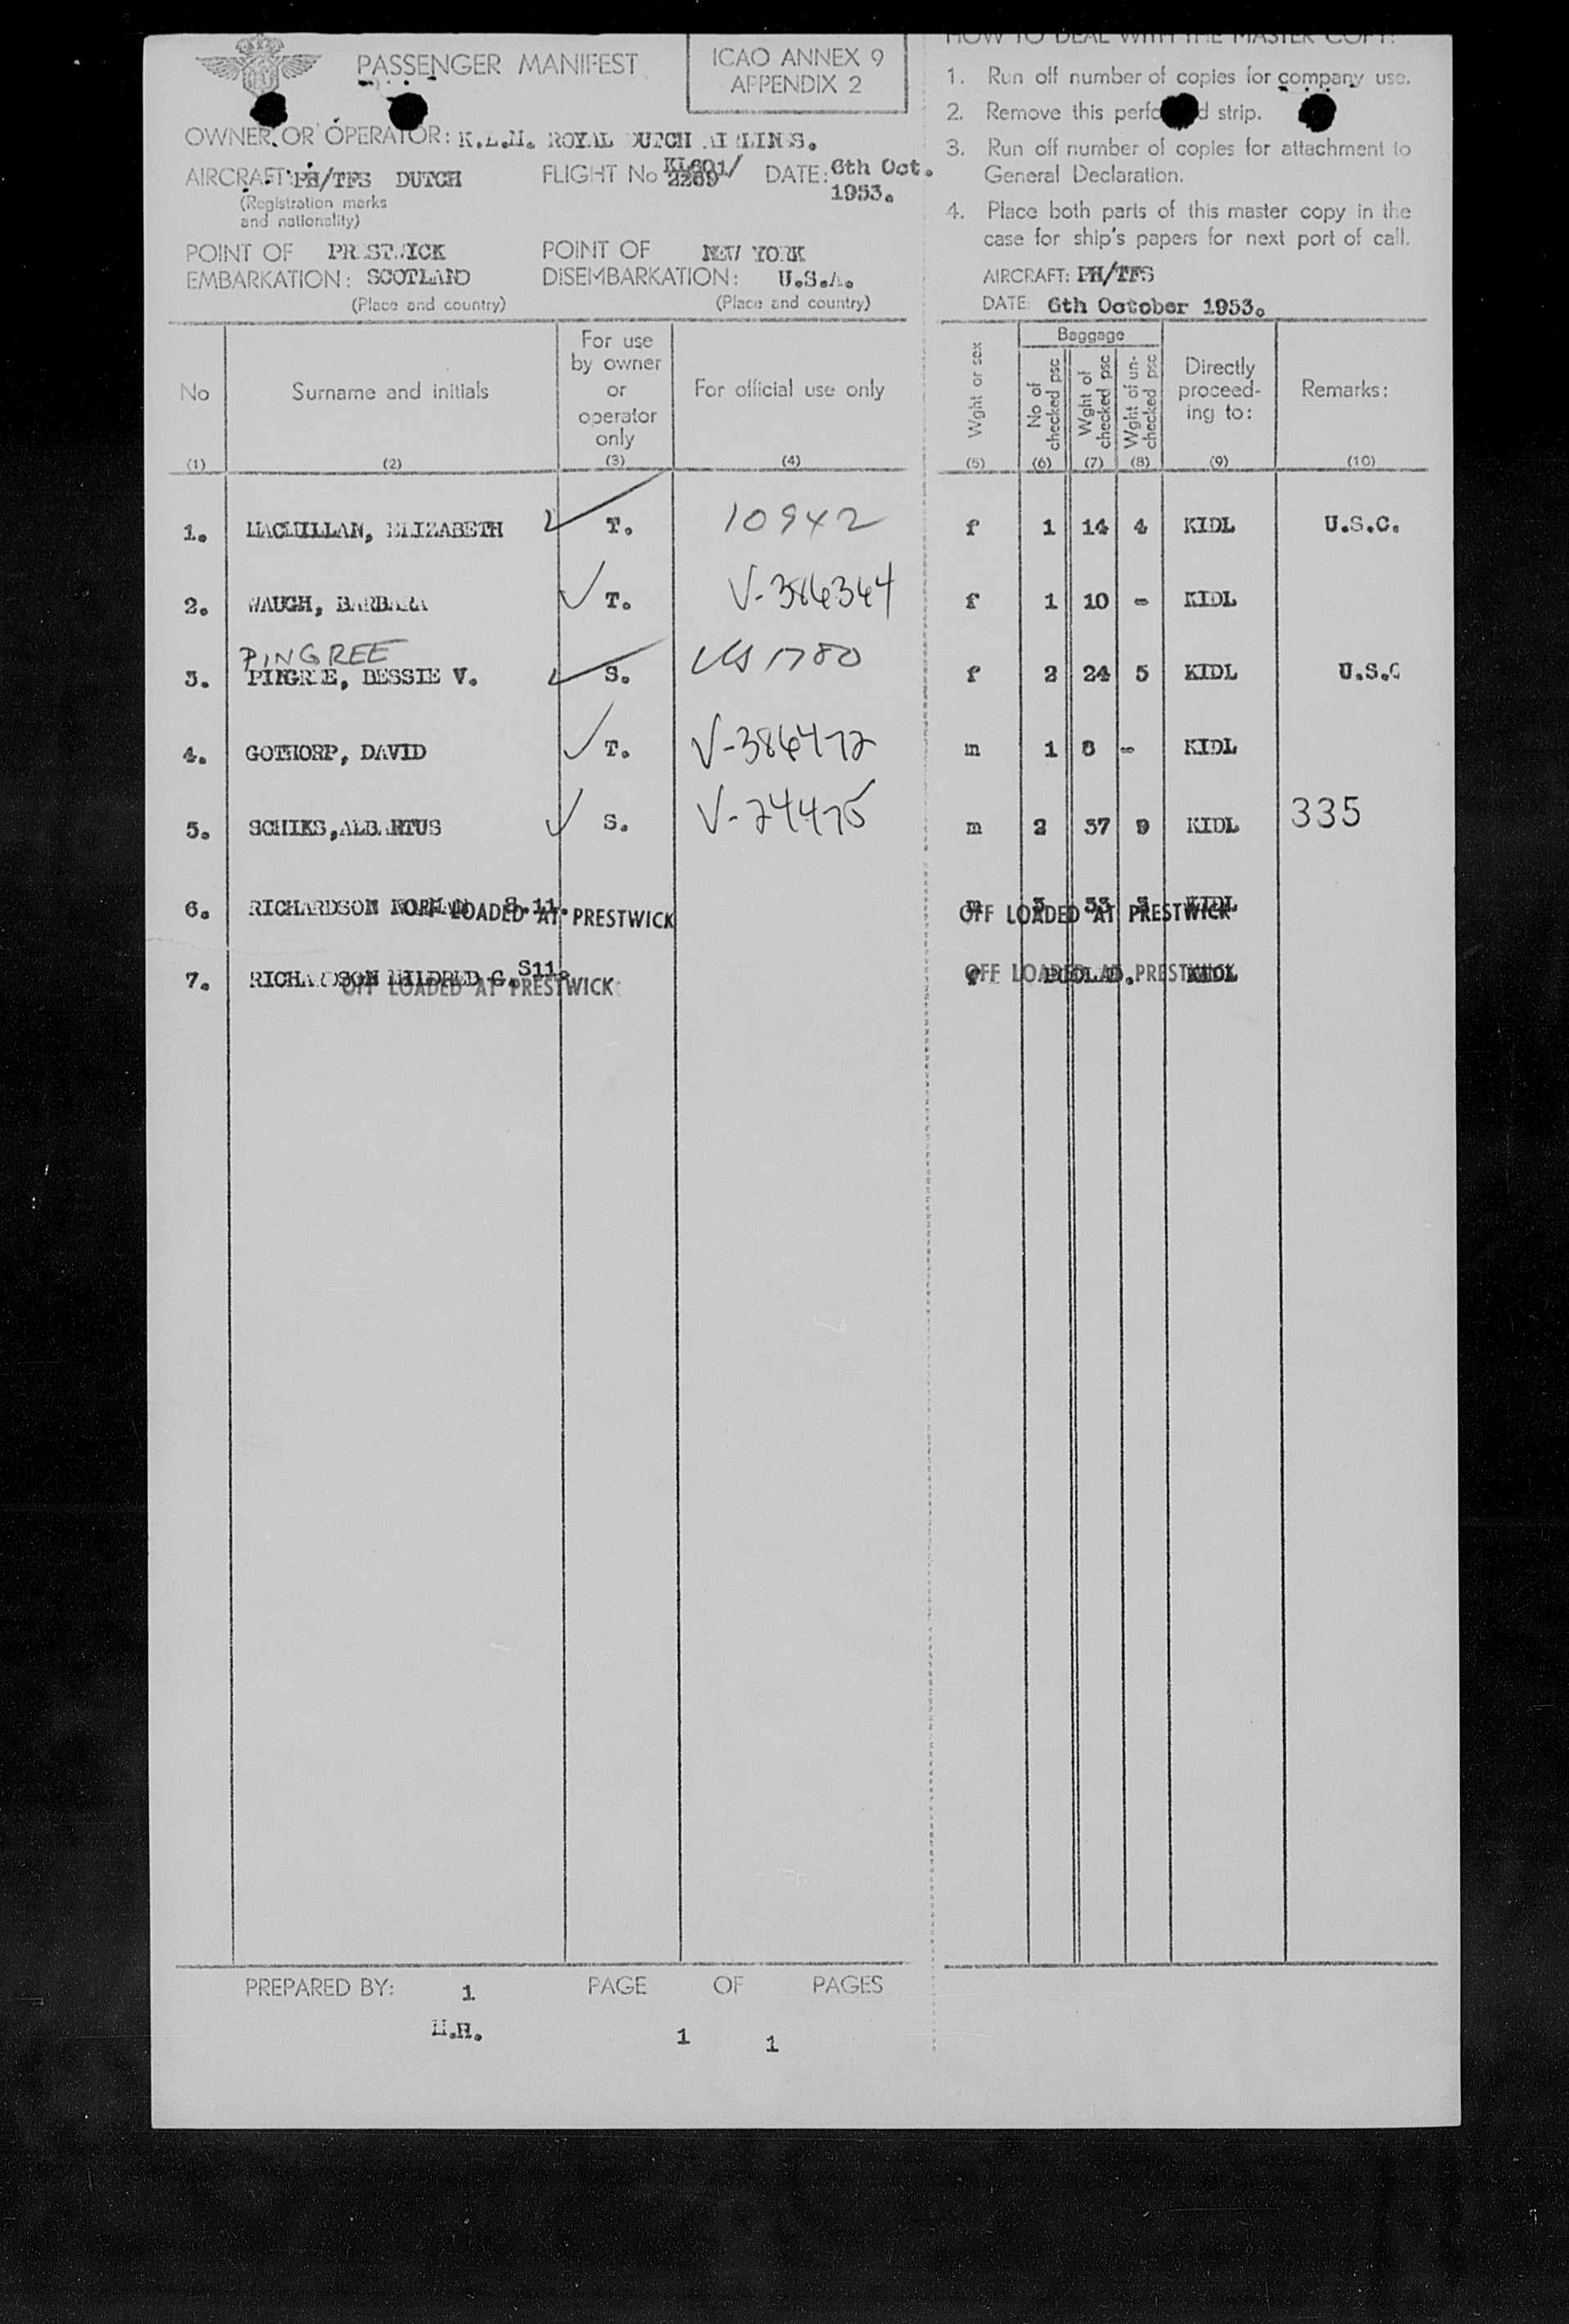 PASSENGER MANIFEST
ICAO ANNEX 9
APPENDIX 2
OWNER OR OPERATOR: K.L.M. ROYAL DUTCH AIRLINES.
AIRCRAFT: PH/TFS DUTCH
(Registration marks
and nationality)
FLIGHT No KL601/
2269
DATE: 6th Oct.
1953.
POINT OF PRESTWICK
EMBARKATION: SCOTLAND
(Place and country)
POINT OF NEW YORK
DISEMBARKATION: U.S.A.
(Place and country)
HOW TO DEAL WITH THE MASTER COPY:
1. Run off number of copies for company use.
2. Remove this perforated strip.
3. Run off number of copies for attachment to
General Declaration.
4. Place both parts of this master copy in the
case for ship's papers for next port of call.
AIRCRAFT: PH/TFS
DATE: 6th October 1953.
No
(1)
Surname and initials
(2)
For use
by owner
or
operator
only
(3)
For official use only
(4)
Wght or sex
(5)
Baggage
No of
checked psc
(6)
Wght of
checked psc
(7)
Wght of un-
checked psc
(8)
Directly
proceed-
ing to:
(9)
Remarks:
(10)
1. MACMILLAN, ELIZABETH T. 10942 f 1 14 4 KIDL U.S.C.
2. WAUGH, BARBARA T. V-386364 f 1 10 - KIDL
PINGREE
3. PINGREE, BESSIE V. S. 1780 f 2 24 5 KIDL U.S.C
4. GOTHORP, DAVID T. V-386472 m 1 8 - KIDL
5. SCHIKS, ALBARTUS S. V-24475 m 2 37 9 KIDL 335
6. RICHARDSON NORMAN S.11. m 3 33 3 KIDL
OFF LOADED AT PRESTWICK OFF LOADED AT PRESTWICK
7. RICHARDSON MILDRED G. S11. f POOLED. KIDL
OFF LOADED AT PRESTWICK OFF LOADED AT PRESTWICK
PREPARED BY: 1 PAGE OF PAGES
M.H. 1 1